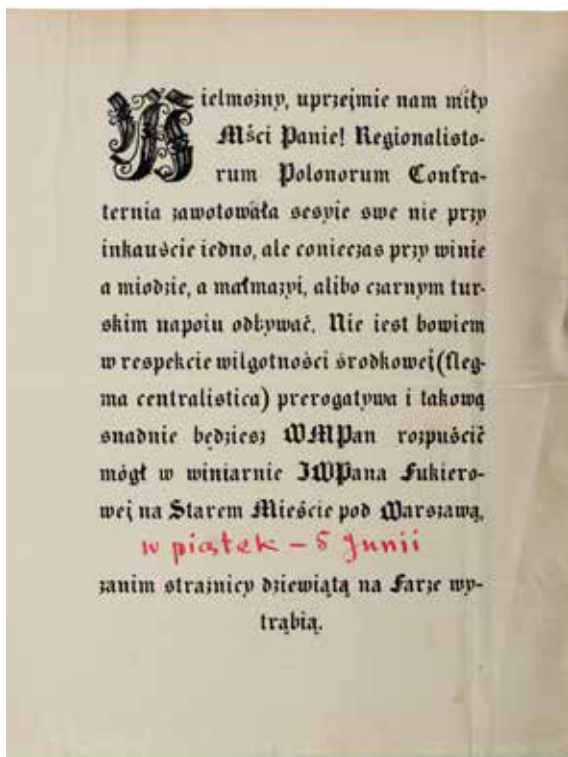 Wielmożny, uprzejmie nam miły
Mści Panie! Regionalisto-
rum Polonorum Confra-
ternia zawotowała sesyie swe nie przy
inkauście iedno, ale conieczas przy winie
a miodzie, a małmazyi, alibo czarnym tur-
skim napoiu odbywać. Nie iest bowiem
w respekcie wilgotności środkowej (fleg-
ma centralistica) prerogatywa i takową
snadnie będziesz WMPan rozpuścić
mógł w winiarnie JWPana Fukiero-
wej na Starem Mieście pod Warszawą,
w piątek – 5 Junii
zanim strażnicy dziewiątą na Farze wy-
trąbią.